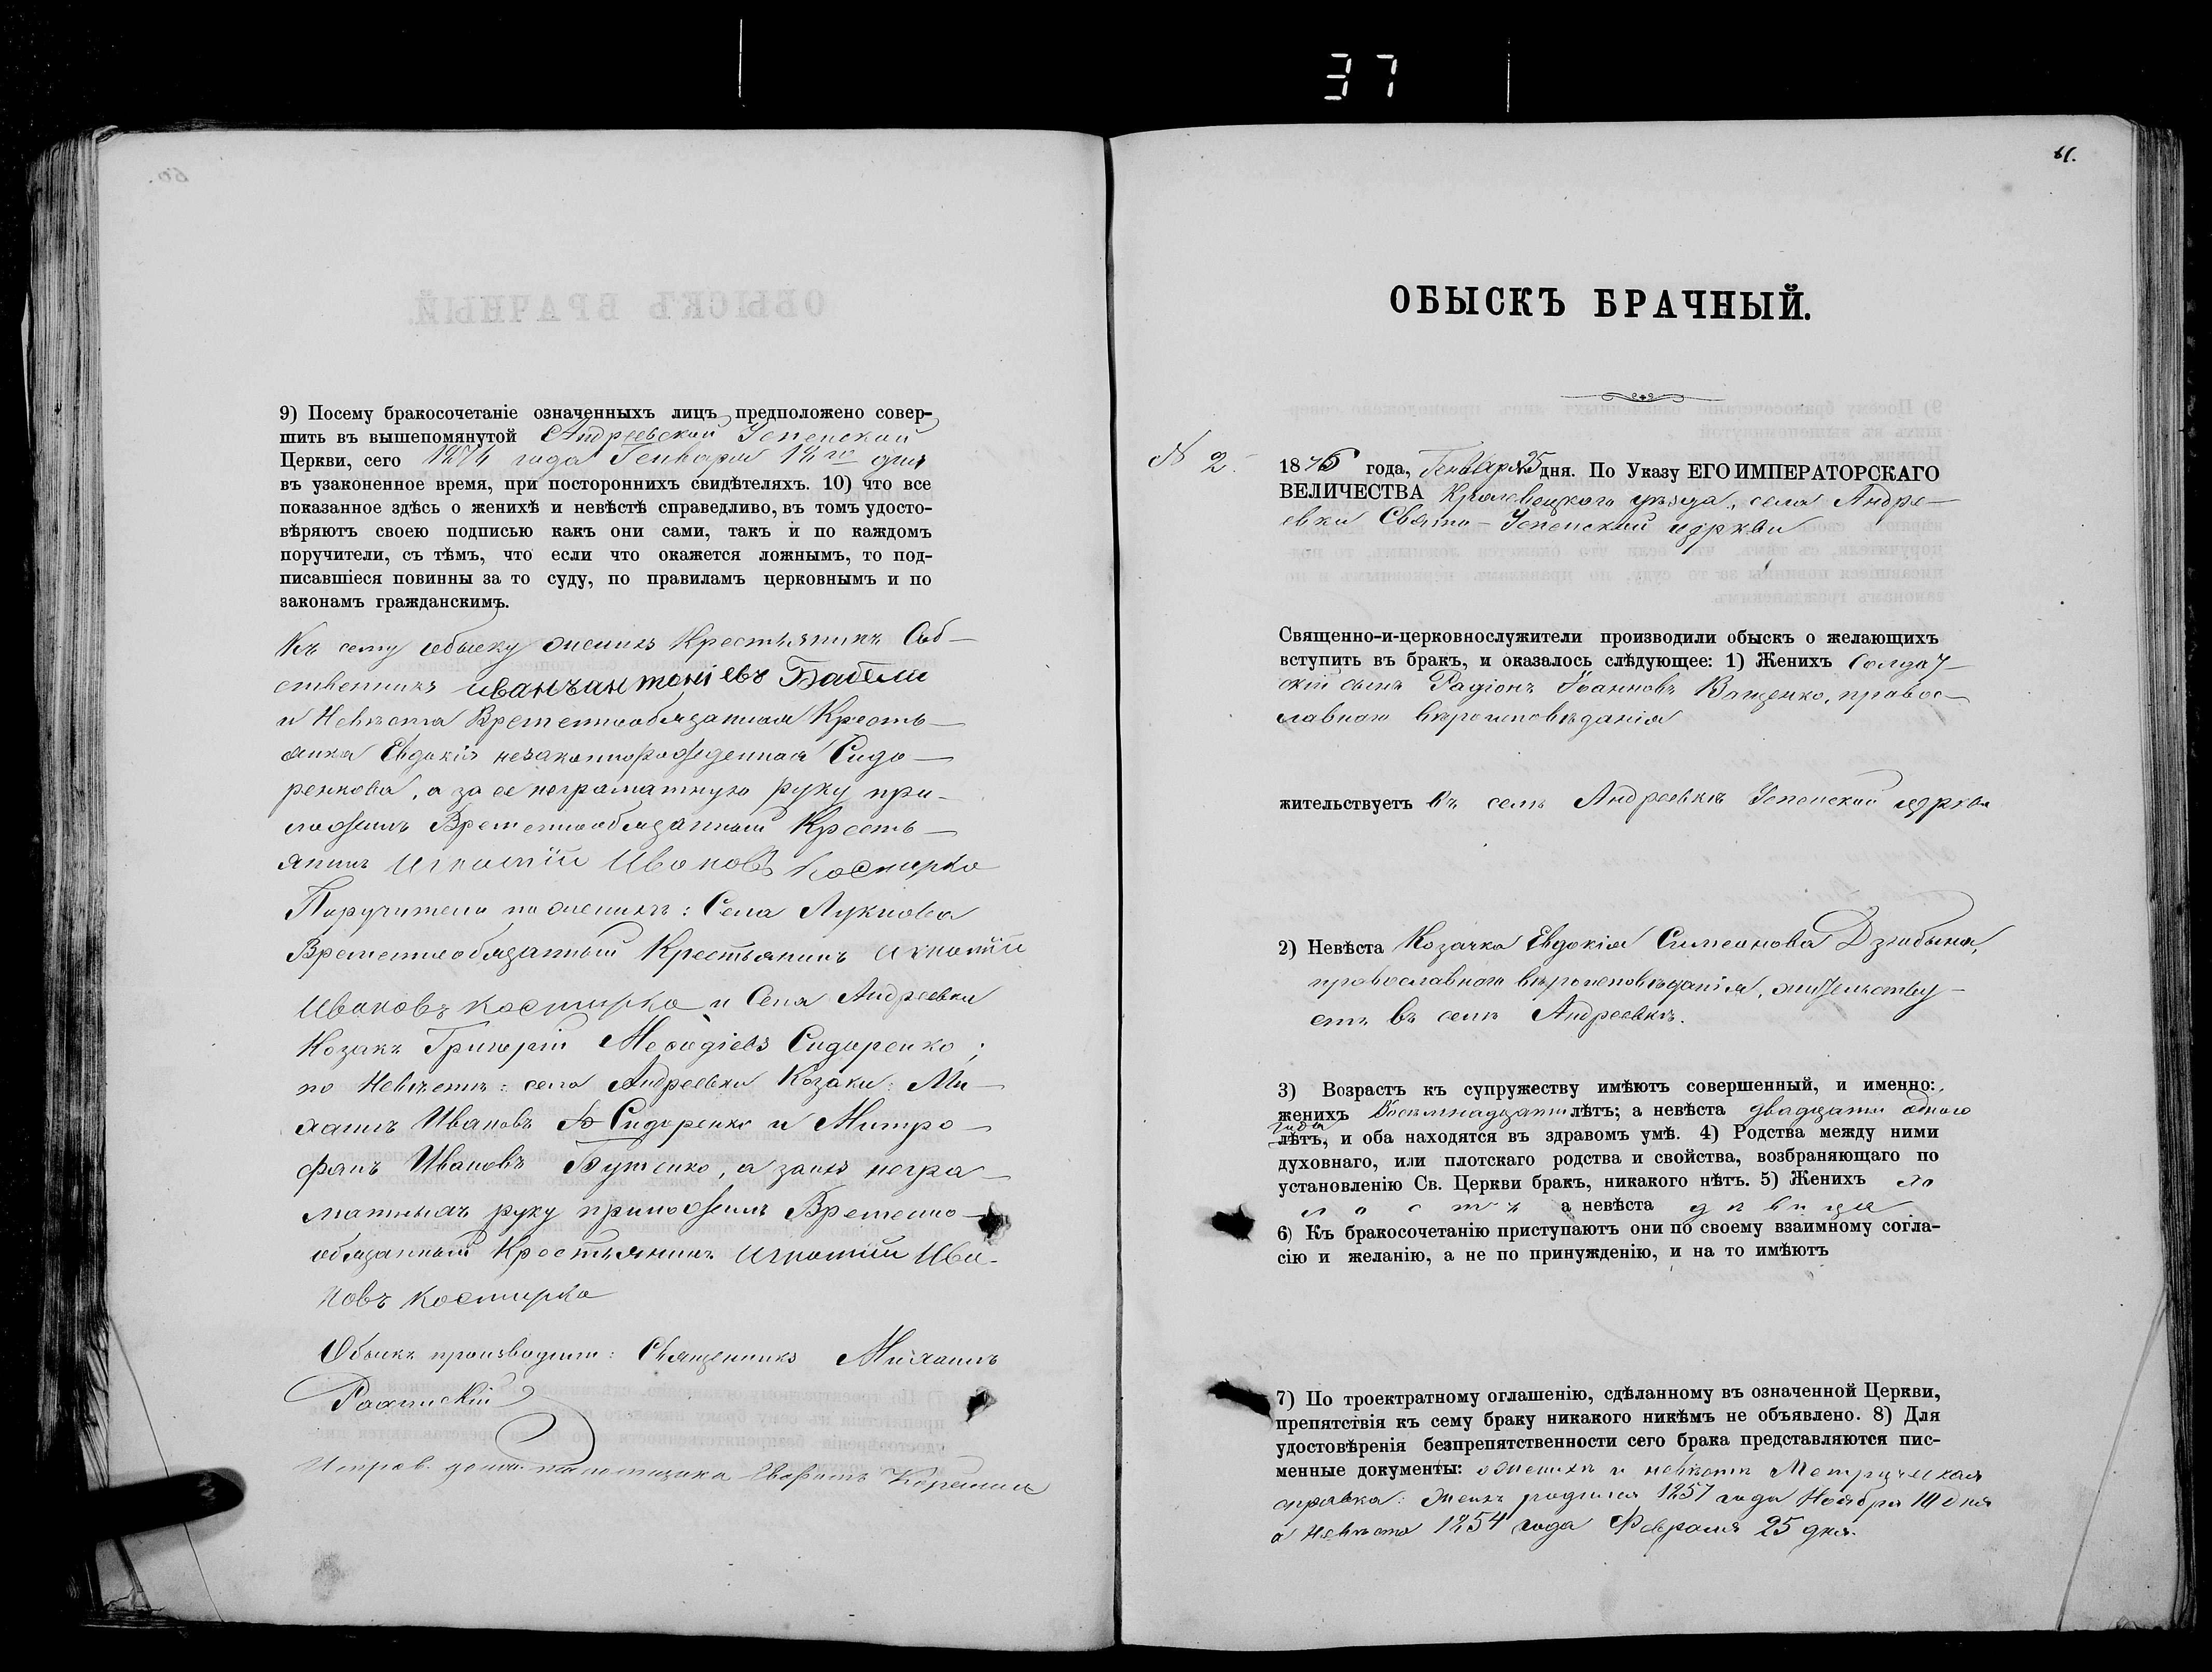 37
9) Посему бракосочетаніе означенныхъ лицъ предположено совер-
шить въ вышепомянутой Андреевской Успенской
Церкви, сего года Генваря дня
въ узаконенное время, при постороннихъ свидѣтеляхъ. 10) что все
показанное здѣсь о женихѣ и невѣстѣ справедливо, въ томъ удосто-
вѣряютъ своею подписью какъ они сами, такъ и по каждомъ
поручители, съ тѣмъ, что если что окажется ложнымъ, то под-
писавшіеся повинны за то суду, по правиламъ церковнымъ и по
законамъ гражданскимъ.
Къ сему обыску женихъ Крестьянинъ Соб-
ственникъ иванъ антоніевъ
и Невѣста Временнообязанная Кресть-
янка Евдокія незаконнорожденная Сидо-
ренкова, а за ее неграматную руку при-
ложилъ Временнообязанный Кресть-
янинъ Игнатій Ивановъ Костирко
Поручители по женихѣ: Села Лукнова
Временнообязанный Крестьянинъ Игнатій
Ивановъ Костирко и Села Андреевки
Козакъ Григорій Меѳодіевъ Сидоренко;
по Невѣстѣ: села Андреевки Козаки: Ми-
хаилъ Ивановъ Сидоренко и Митро-
фанъ Ивановъ Бутенко, а за ихъ негра-
матныхъ руку приложилъ Временно-
обязанный Крестьянинъ Игнатій Ива-
новъ Костирко
Обыскъ производили: Священникъ Михаилъ
61.
ОБЫСКЪ БРАЧНЫЙ.
№ 2.
1875 года, Генваря 25 дня. По Указу ЕГО ИМПЕРАТОРСКАГО
ВЕЛИЧЕСТВА Кролевецкого уѣзда, села Андре-
евки Свято-Успенской церкви
Священно-и-церковнослужители производили обыскъ о желающихъ
вступить въ бракъ, и оказалось слѣдующее: 1) Женихъ Солдат-
скій сынъ Радіонъ Іоанновъ Ващенко, правос-
лавнаго вѣроисповѣданія
жительствуетъ въ селѣ Андреевкѣ Успенской церкви
2) Невѣста Козачка Евдокія Симеонова Дзюбина,
православнаго вѣроисповѣданія, жительству-
етъ въ селѣ Андреевкѣ.
3) Возрастъ къ супружеству имѣютъ совершенный, и именно:
женихъ Восемнадцати лѣтъ; а невѣста двадцати одного
года
лѣтъ, и оба находятся въ здравомъ умѣ. 4) Родства между ними
духовнаго, или плотскаго родства и свойства, возбраняющаго по
установленію Св. Церкви бракъ, никакого нѣтъ. 5) Женихъ хо
лостъ а невѣста дѣвица
6) Къ бракосочетанію приступаютъ они по своему взаимному согла-
сію и желанію, а не по принужденію, и на то имѣютъ
7) По троектратному оглашенію, сдѣланному въ означенной Церкви,
препятствія къ сему браку никакого никѣмъ не объявлено. 8) Для
удостовѣренія безпрепятственности сего брака представляются пис-
менные документы: о женихѣ и невѣстѣ Метрическая
справка: Женихъ родился 1857 года Ноября 10 дня
а Невѣста 1854 года Февраля 25 дня.